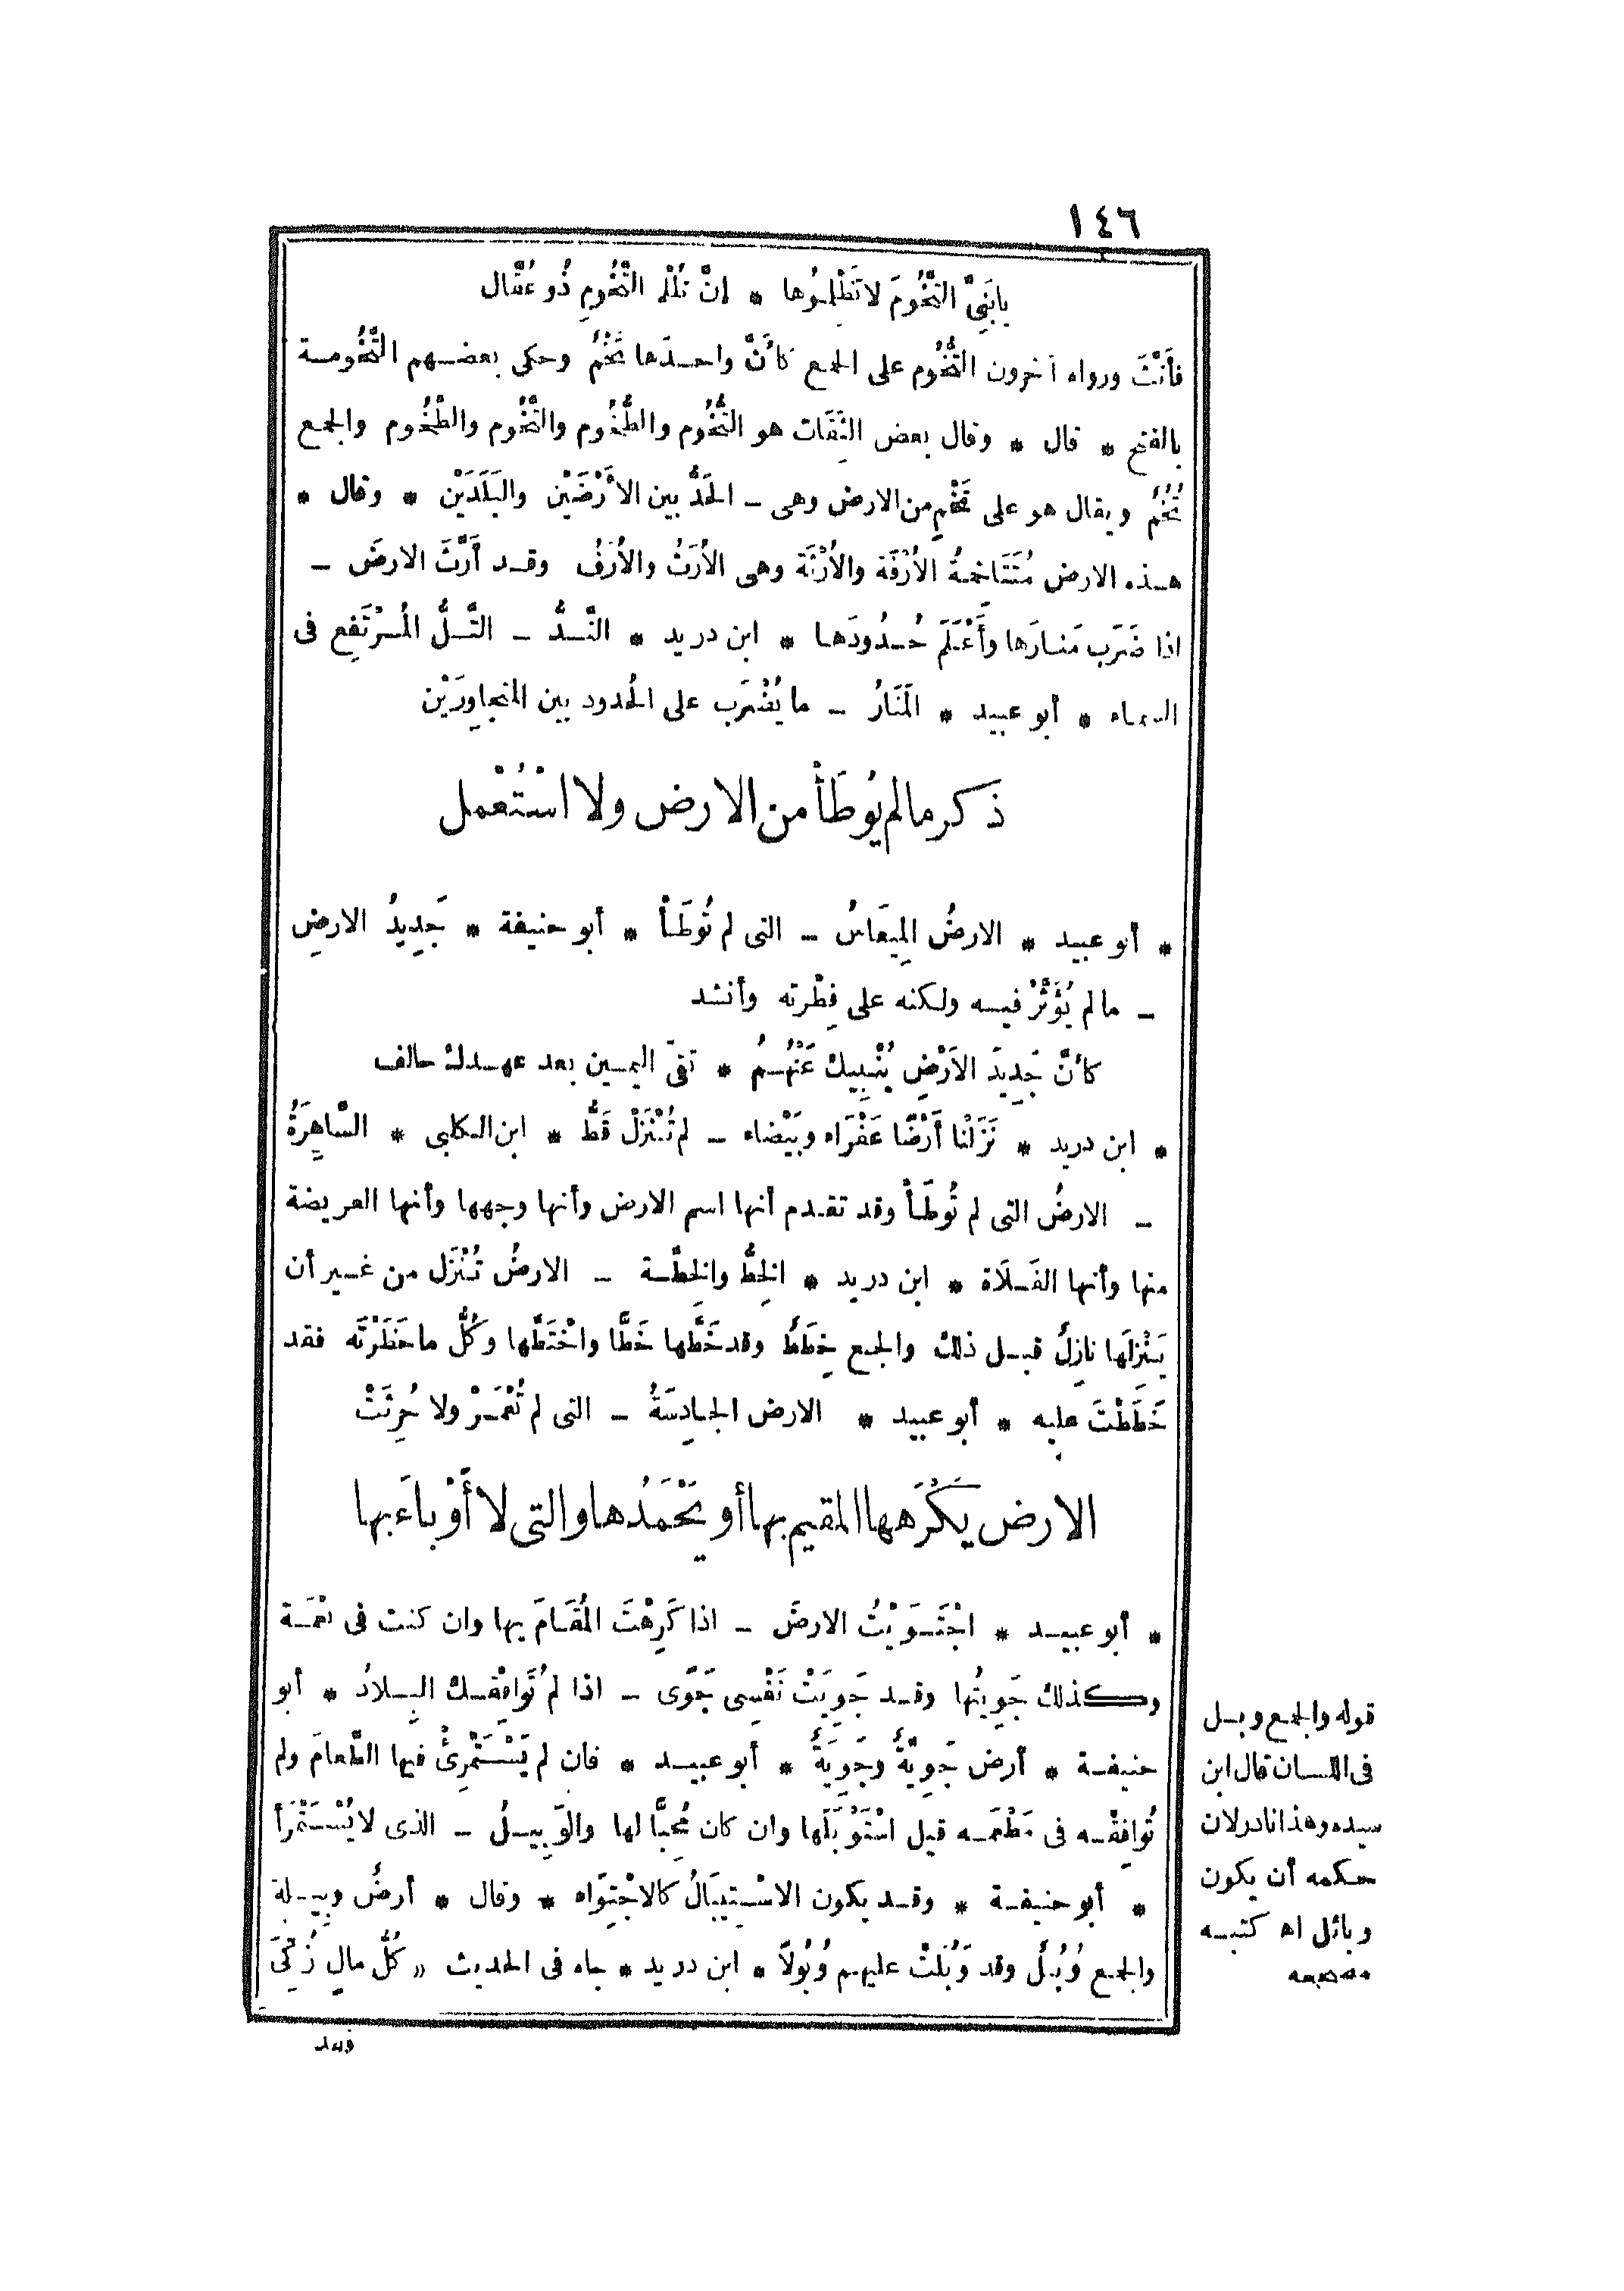 ١٤٦
يابَنِىَّ التَّخُومَ لا تَظْلِمُوها * انَّ ظُلْمَ التَّخُومِ ذُو عُقَّال
فأَنَّثَ ورواه آخرون التُّخُوم على الجمع كأنَّ واحدَها تَخْمٌ وحكى بعضهم التَّخُومة
بالفتح * قال * وقال بعض الثِّقَات هو التُّخُوم والطُّخُوم والتَّخُوم والطَّخُوم والجمع
تُخُمٌ ويقال هو على تَخْمٍ من الارض وهى ـ الحَدُّ بين الأَرْضَيْن والبَلَدَيْن * وقال *
هذه الارض مُتَتَاخِمةُ الأُرْفَة والأُرْثَة وهى الأُرَثُ والأُرَفُ وقد أَرَّثَ الارضَ ـ
اذا ضَرَب مَنارَها وأَعْلَمَ حُدُودَها * ابن دريد * النَّدُّ ـ التَّلُّ المُرْتَفِع فى
السماء * أبو عبيد * المَنَارُ ـ ما يُضْرَب على الحُدود بين المتجاوِرَيْن
ذكر ما لم يُوطَأْ من الارض ولا اسْتُعْمل
* أبو عبيد * الارضُ المِيعَاسُ ـ التى لم تُوطَأْ * أبو حنيفة * جَدِيدُ الارضِ
ـ مالم يُؤَثَّرْ فيه ولكنه على فِطْرته وأنشد
كأنَّ جَدِيدَ الأَرْضِ يُنْبِيكَ عَنْهُمُ * تَقىّ اليمين بعد عهدك حالف
* ابن دريد * نَزَلْنا أَرْضًا عَفْرَاء وبَيْضاء ـ لم تُنْزَلْ قَطُّ * ابن الكلبى * السَّاهِرَةُ
ـ الارضُ التى لم تُوطَأْ وقد تقدم أنها اسم الارض وأنها وجهها وأنها العريضة
منها وأنها الفَلَاة * ابن دريد * الخِطُّ والخِطَّة ـ الارضُ تُنْزَل من غير أن
يَنْزِلَها نازِلٌ قبل ذلك والجمع خِطَطٌ وقد خَطَّها خَطًّا واخْتَطَّها وكُلُّ ما حَظَرْتَه فقد
خَطَطْتَ عليه * أبو عبيد * الارض الجادِسَةُ ـ التى لم تُعْمَرْ ولا حُرِثَتْ
الارض يَكْرَهها المقيم بها أو يَحْمَدُها والتى لا أَوْباءَ بها
* أبو عبيد * اجْتَوَيْتُ الارضَ ـ اذا كَرِهْتَ المُقَامَ بها وان كنت فى نعْمَة
وكذلك جَوِيتُها وقد جَوِيَتْ نَفْسِى جَوًى ـ اذا لم تُوَافِقْك البِلادُ * أبو
حنيفة * أرض جَوِيَّةٌ وجَوِيَةٌ * أبو عبيد * فان لم يَسْتَمْرِئْ فيها الطَّعامَ ولم
تُوافِقْه فى مَطْعَمه قيل اسْتَوْبَلَها وان كان مُحِبًّا لها والوَبِيلُ ـ الذى لا يُسْتَمْرَأ
* أبو حنيفة * وقد يكون الاسْتِيبَالُ كالاجْتِوَاء * وقال * أرضٌ وبِيلة
والجمع وُبُلٌ وقد وَبُلَتْ عليهم وُبُولًا * ابن دريد * جاء فى الحديث « كُلُّ مالٍ زُكِّىَ
فقد
قوله والجمع وبل
فى اللسان قال ابن
سيده وهذا نادر لان
حكمه أن يكون
وبائل اه كتبه
مصححه